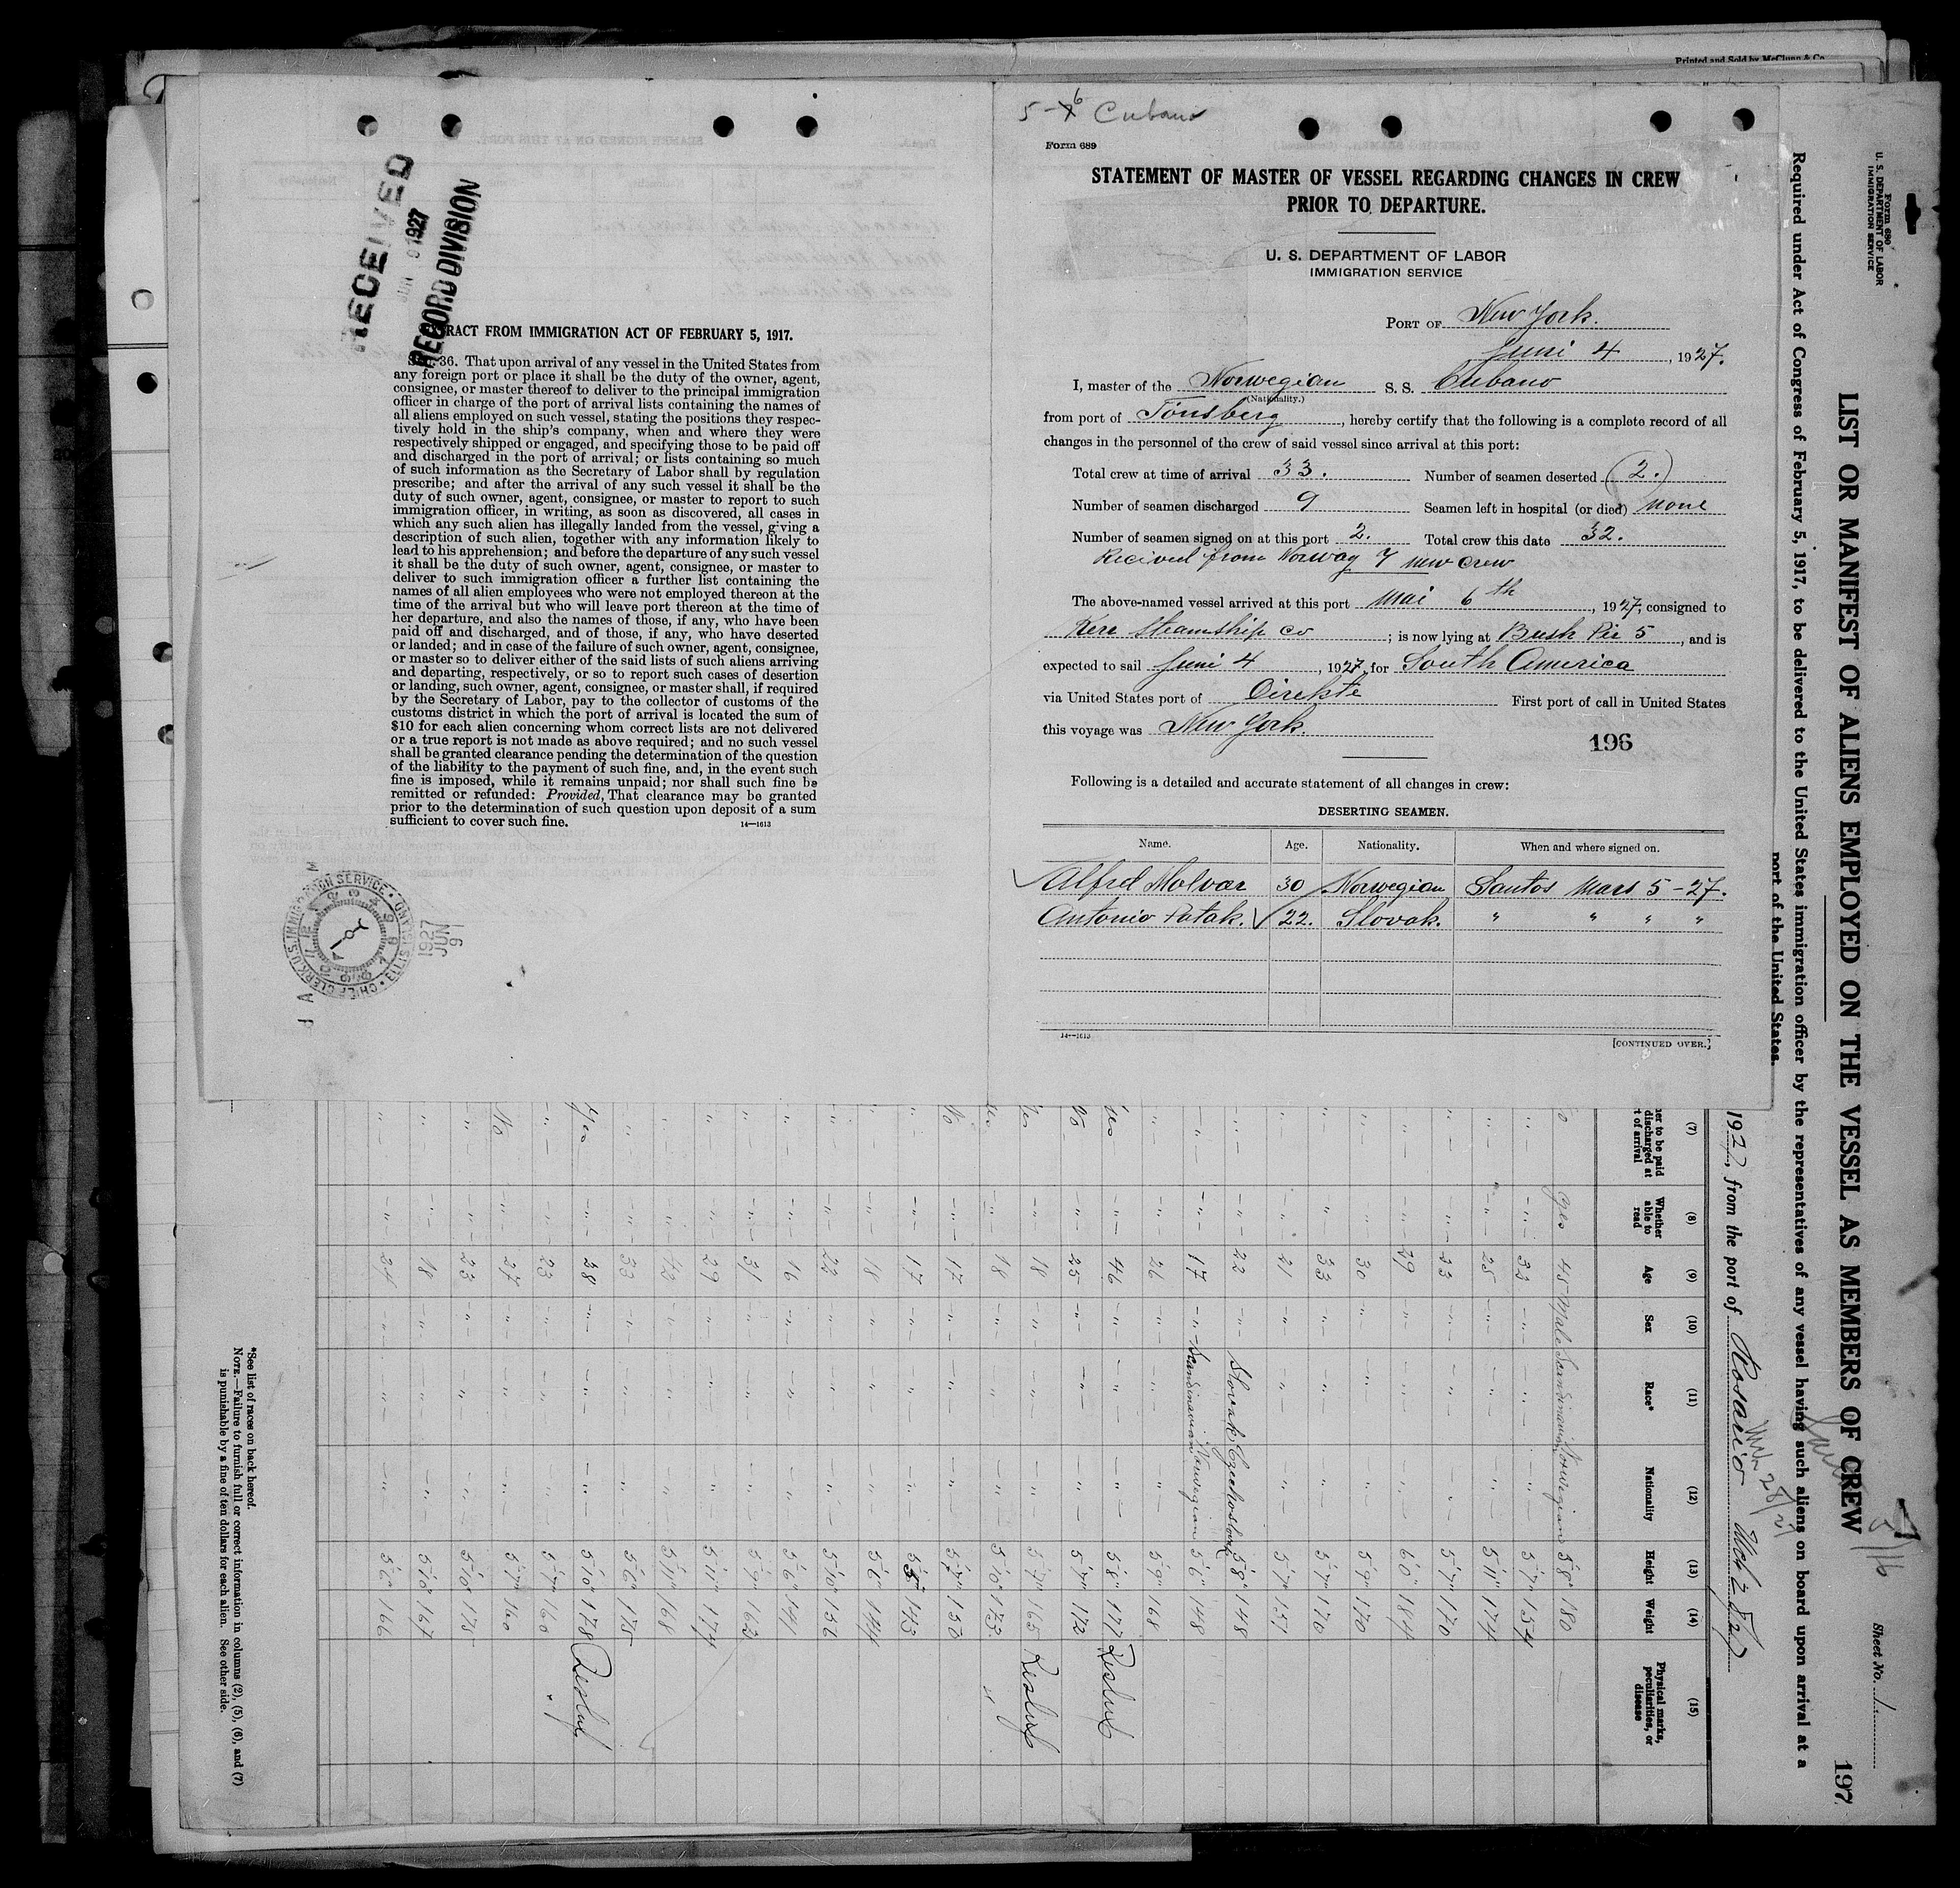 Printed and Sold by McClunn & Co.
RECEIVED
JUN 9 1927
RECORD DIVISION
EXTRACT FROM IMMIGRATION ACT OF FEBRUARY 5, 1917.
SEC. 36. That upon arrival of any vessel in the United States from
any foreign port or place it shall be the duty of the owner, agent,
consignee, or master thereof to deliver to the principal immigration
officer in charge of the port of arrival lists containing the names of
all aliens employed on such vessel, stating the positions they respec-
tively hold in the ship's company, when and where they were
respectively shipped or engaged, and specifying those to be paid off
and discharged in the port of arrival; or lists containing so much
of such information as the Secretary of Labor shall by regulation
prescribe; and after the arrival of any such vessel it shall be the
duty of such owner, agent, consignee, or master to report to such
immigration officer, in writing, as soon as discovered, all cases in
which any such alien has illegally landed from the vessel, giving a
description of such alien, together with any information likely to
lead to his apprehension; and before the departure of any such vessel
it shall be the duty of such owner, agent, consignee, or master to
deliver to such immigration officer a further list containing the
names of all alien employees who were not employed thereon at the
time of the arrival but who will leave port thereon at the time of
her departure, and also the names of those, if any, who have been
paid off and discharged, and of those, if any, who have deserted
or landed; and in case of the failure of such owner, agent, consignee,
or master so to deliver either of the said lists of such aliens arriving
and departing, respectively, or so to report such cases of desertion
or landing, such owner, agent, consignee, or master shall, if required
by the Secretary of Labor, pay to the collector of customs of the
customs district in which the port of arrival is located the sum of
$10 for each alien concerning whom correct lists are not delivered
or a true report is not made as above required; and no such vessel
shall be granted clearance pending the determination of the question
of the liability to the payment of such fine, and, in the event such
fine is imposed, while it remains unpaid; nor shall such fine be
remitted or refunded: Provided, That clearance may be granted
prior to the determination of such question upon deposit of a sum
sufficient to cover such fine. 14—1613
CHIEF CLERK U.S. IMMIGRATION SERVICE · ELLIS ISLAND ·
1927
JUN
9
5-6 Cubano
Form 689
STATEMENT OF MASTER OF VESSEL REGARDING CHANGES IN CREW
PRIOR TO DEPARTURE.
U. S. DEPARTMENT OF LABOR
IMMIGRATION SERVICE
PORT OF New York.
Juni 4, 1927.
I, master of the Norwegian S. S. Cubano
(Nationality.)
from port of Tönsberg, hereby certify that the following is a complete record of all
changes in the personnel of the crew of said vessel since arrival at this port:
Total crew at time of arrival 33. Number of seamen deserted 2.
Number of seamen discharged 9 Seamen left in hospital (or died) None
Number of seamen signed on at this port 2. Total crew this date 32.
Recived from Norway 7 new crew
The above-named vessel arrived at this port Mai 6th, 1927, consigned to
Kerr Steamship Co; is now lying at Bush Pir 5, and is
expected to sail Juni 4, 1927, for South America
via United States port of Direkte First port of call in United States
this voyage was New York.
196
Following is a detailed and accurate statement of all changes in crew:
DESERTING SEAMEN.
Name. Age. Nationality. When and where signed on.
Alfred Molvar 30 Norwegian Santos Mars 5-27.
Antonio Patak. 22. Slovak. " " " "
14—1613
[CONTINUED OVER.]
Form 680
U. S. DEPARTMENT OF LABOR
IMMIGRATION SERVICE
Sheet No. 1
197
LIST OR MANIFEST OF ALIENS EMPLOYED ON THE VESSEL AS MEMBERS OF CREW
Required under Act of Congress of February 5, 1917, to be delivered to the United States immigration officer by the representatives of any vessel having such aliens on board upon arrival at a
port of the United States.
1927, from the port of Rosario
(7) (8) (9) (10) (11) (12) (13) (14) (15)
her to be paid discharged at t of arrival
Whether able to read
Age
Sex
Race*
Nationality
Height
Weight
Physical marks, peculiarities, or disease
Yes 45 Male Scandinavian Norwegian 5'8" 180
33 5'7" 154
25 5'11" 174
23 5'7" 170
29 6'0" 184
30 5'9" 170
33 5'7" 170
21 5'7" 157
22 Slovak Czechoslovak 5'8" 148
17 Scandinavian Norwegian 5'6" 148
26 5'9" 168
Yes 46 5'8" 177
No 25 5'7" 172
Yes 18 5'7" 165
18 5'10" 173
No 17 5'7" 150
17 143
18 5'6" 144
22 5'10" 136
16 5'6" 141
31 5'9" 162
29 5'11" 174
42 5'11" 168
33 5'6" 175
Yes 38 5'10" 178
23 5'7" 160
No 27 5'7" 160
23 5'10" 175
18 5'10" 167
24 5'6" 166
*See list of races on back hereof.
NOTE.—Failure to furnish full or correct information in columns (2), (5), (6), and (7)
is punishable by a fine of ten dollars for each alien. See other side.